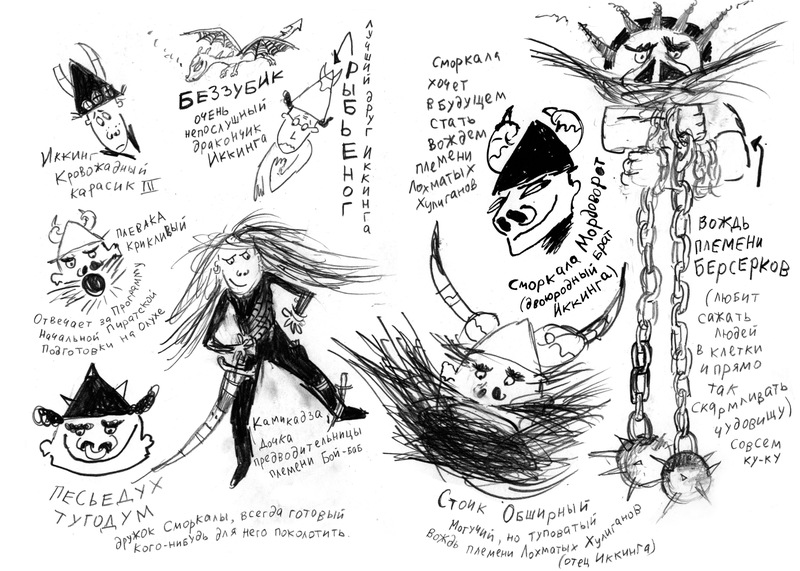 Иккинг
Кровожадный
карасик III
БЕЗЗУБИК
очень
непослушный
дракончик
Иккинга
Рыбьеног
лучший друг Иккинга
Плевака
Крикливый
Отвечает за Программу
Начальной Пиратской
Подготовки на Олухе
ПЕСЬЕДУХ
ТУГОДУМ
дружок Сморкалы, всегда готовый
кого-нибудь для него поколотить.
Камикадза,
дочка
предводительницы
племени Бой-баб
Сморкала
хочет
в будущем
стать
вождем
племени
Лохматых
Хулиганов
Сморкала Мордоворот
(двоюродный брат
Иккинга)
Стоик Обширный
Могучий, но туповатый
вождь племени Лохматых Хулиганов
(отец Иккинга)
Вождь
племени
Берсерков
(любит
сажать
людей
в клетки
и прямо
так
скармливать
чудовищу)
совсем
ку-ку